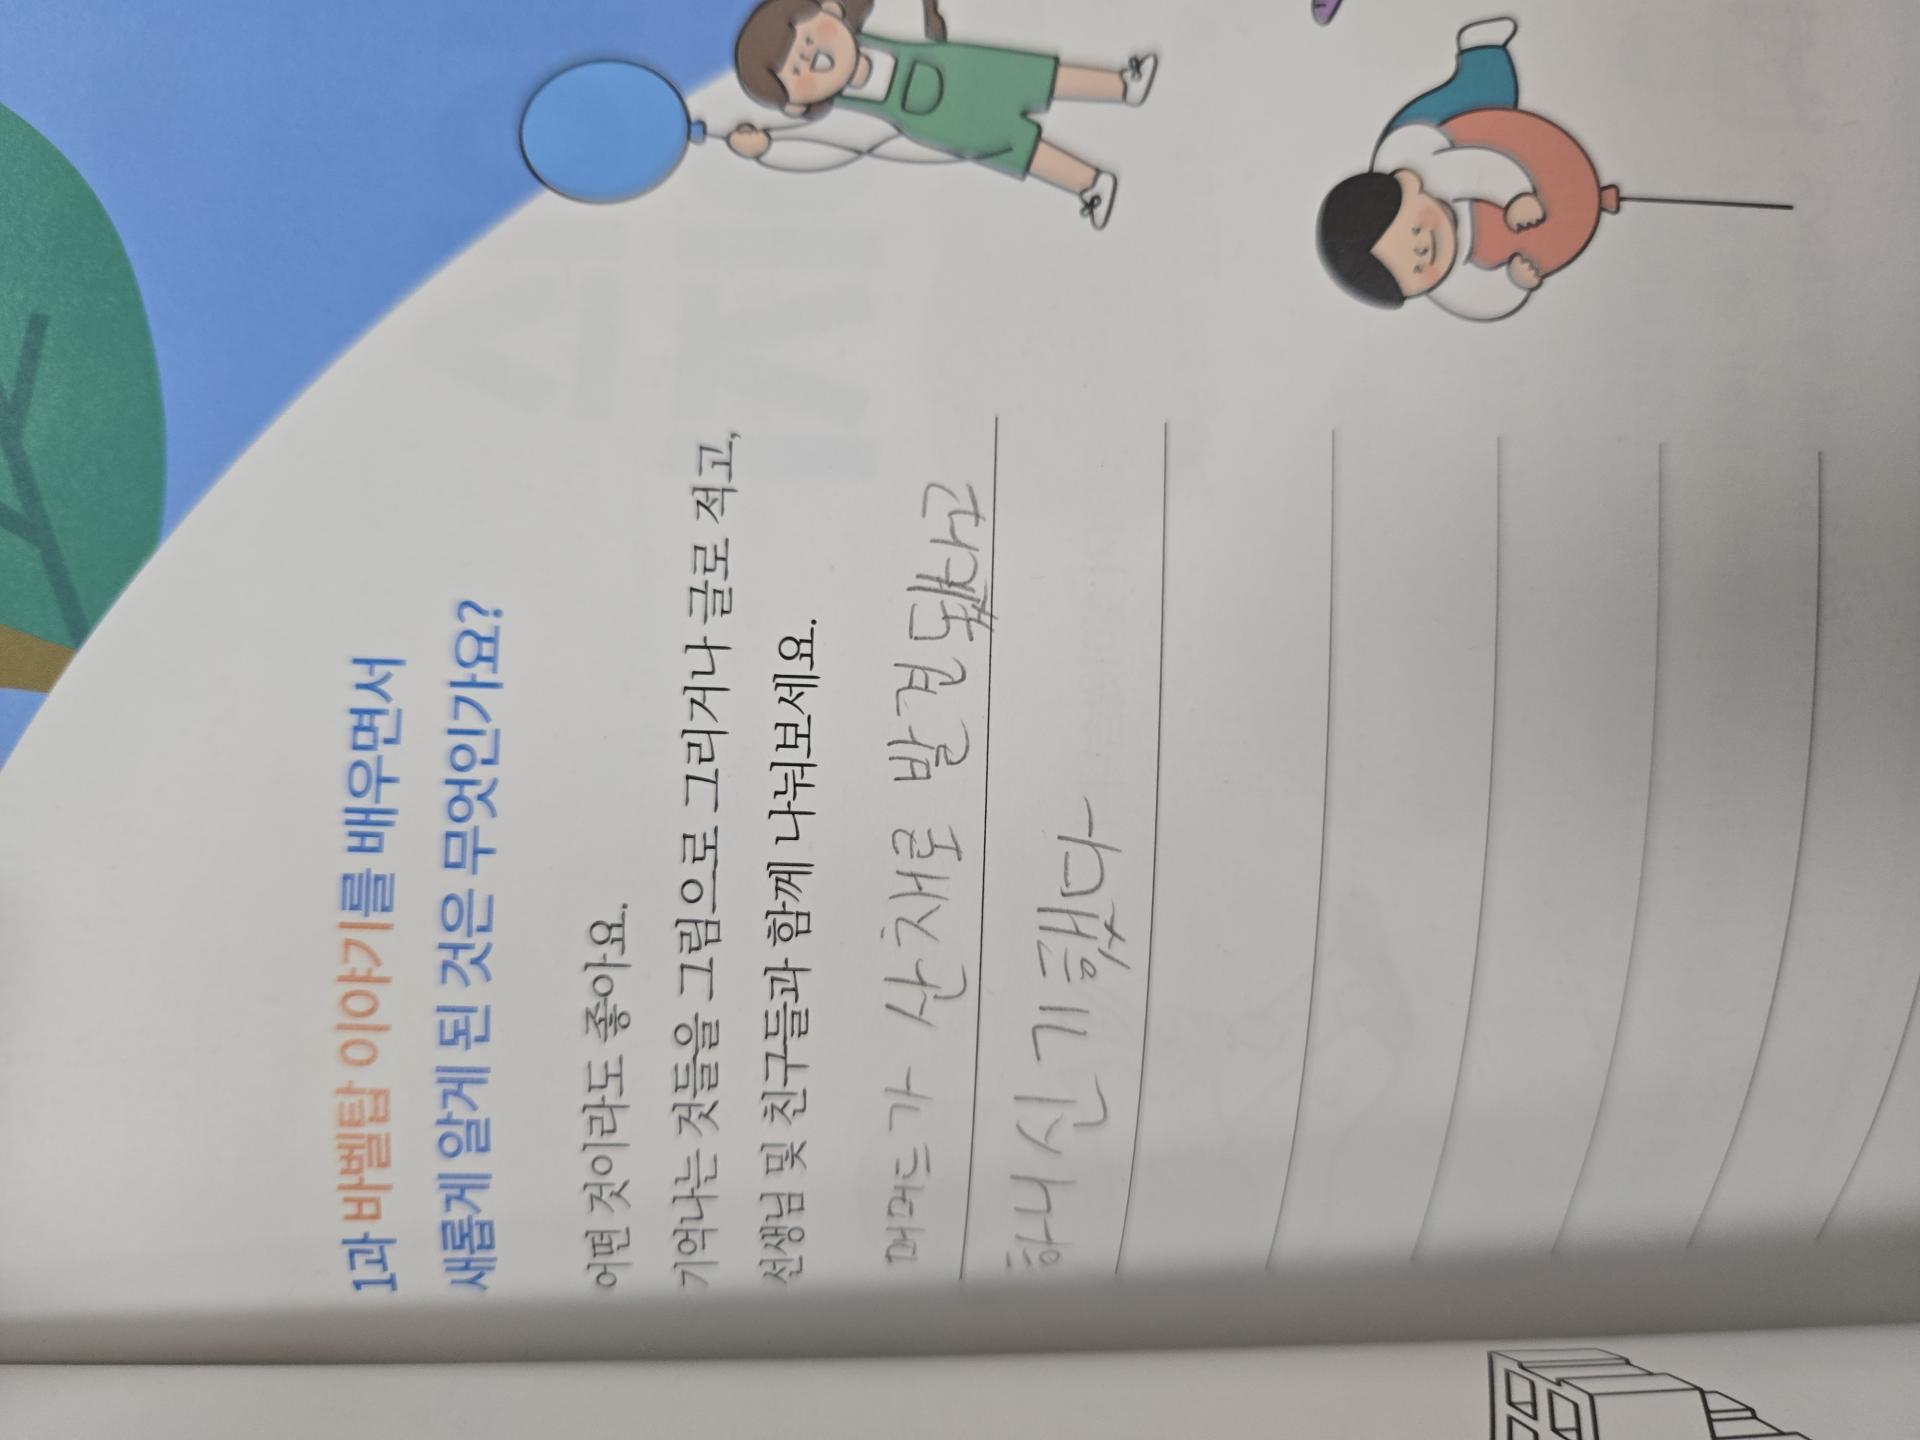 1과 바벨탑 이야기를 배우면서
새롭게 알게 된 것은 무엇인가요?
어떤 것이라도 좋아요.
기억나는 것들을 그림으로 그리거나 글로 적고,
선생님 및 친구들과 함께 나눠보세요.
매머드가 산채로 발견됐다고
하니 신기했다